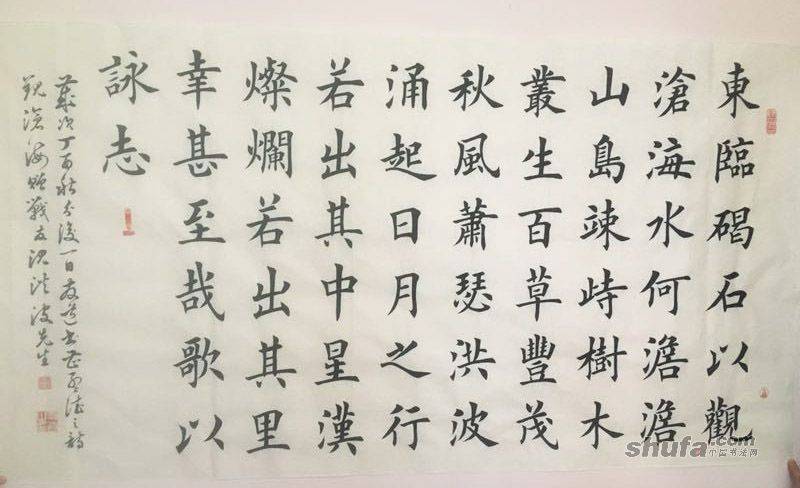 東臨碣石以觀
滄海水何澹澹
山島竦峙樹木
叢生百草豐茂
秋風蕭瑟洪波
涌起日月之行
若出其中星漢
燦爛若出其里
幸甚至哉歌以
詠志
歲次丁酉秋分後一日
觀滄海贈戰友沈洪波先生
shufa.com
中国书法网